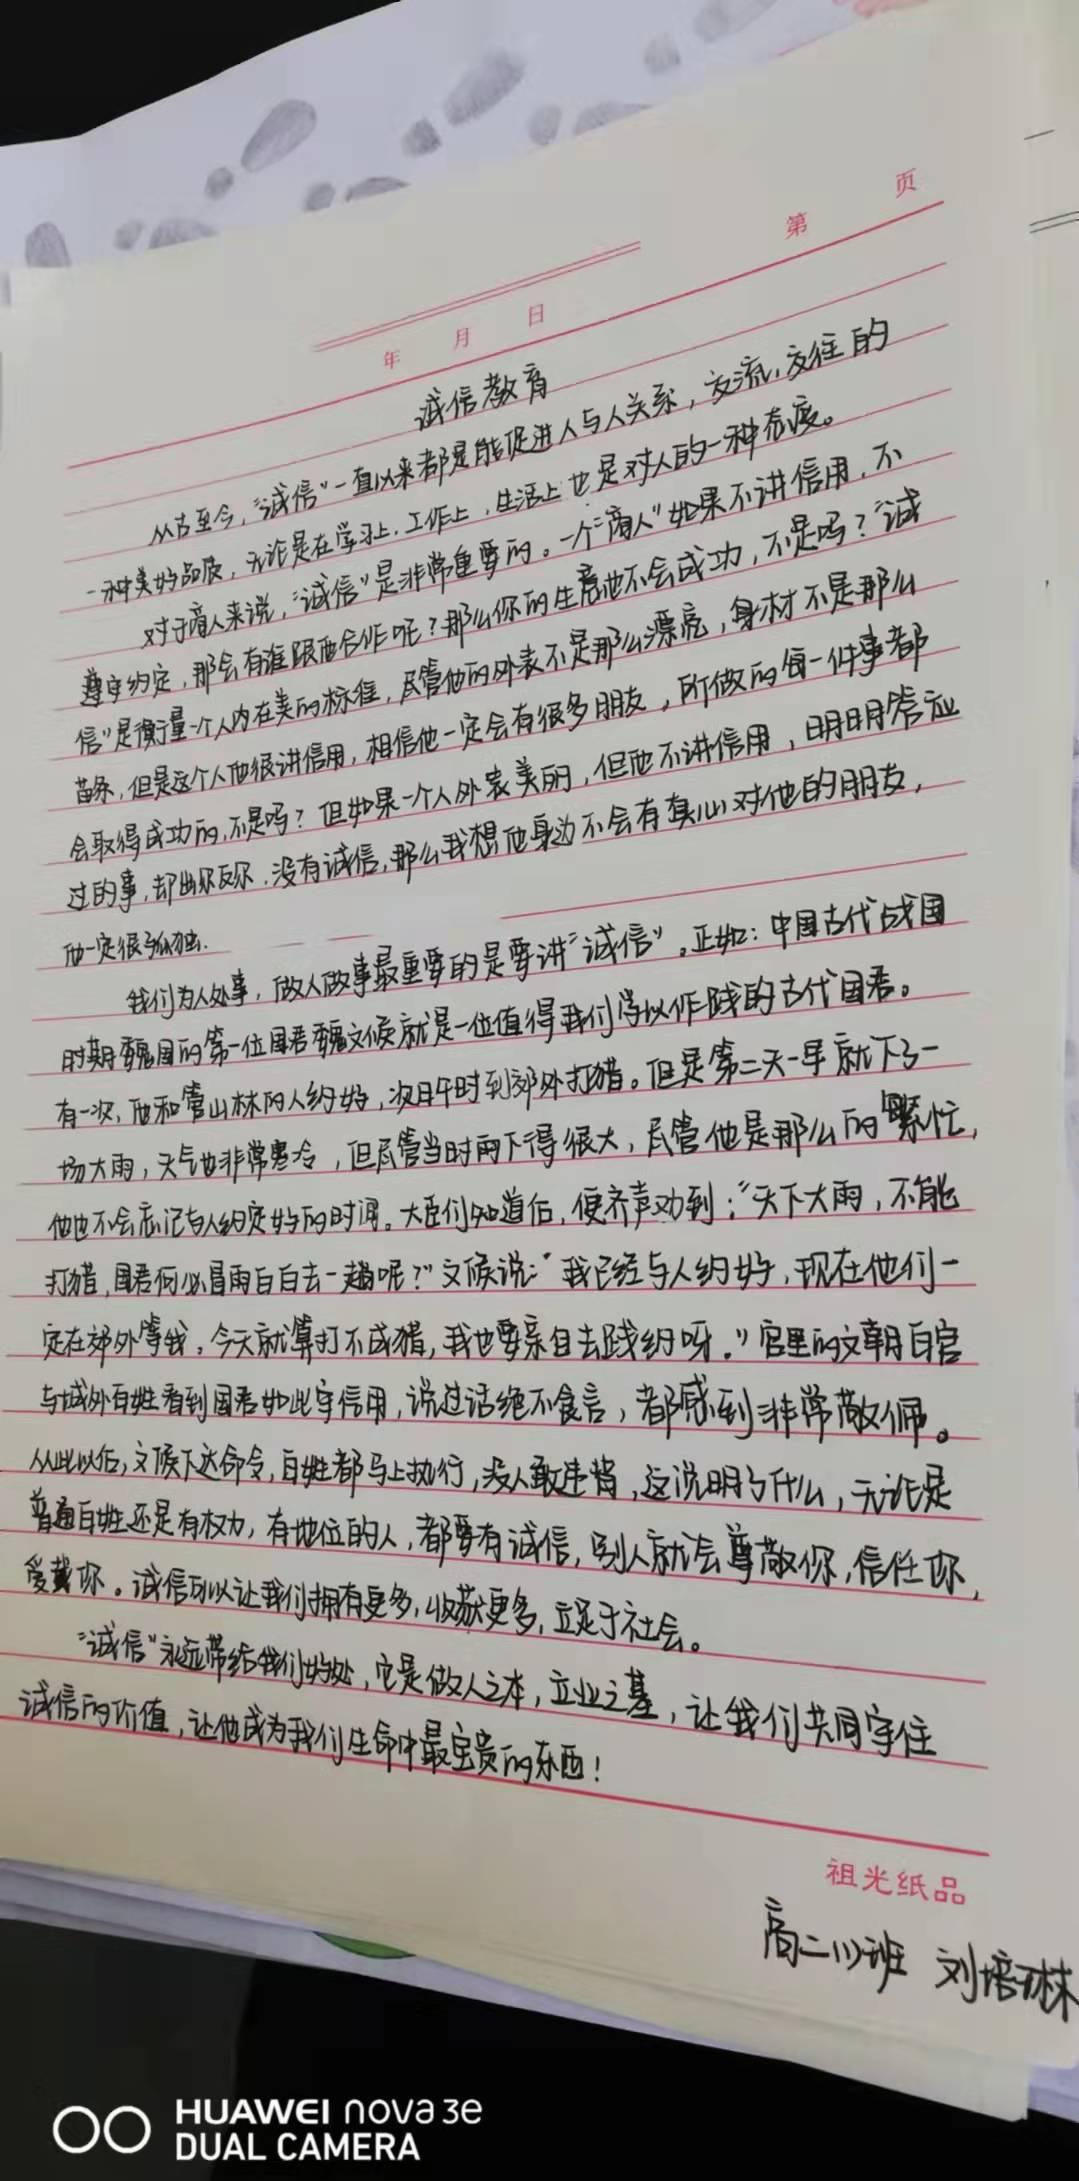 第 页
年 月 日
诚信教育
从古至今，“诚信”一直以来都是能促进人与人关系，交流，交往的
一种美好品质，无论是在学习上，工作上，生活上也是对人的一种态度。
对于商人来说，“诚信”是非常重要的。一个“商人”如果不讲信用，不
遵守约定，那会有谁跟他合作呢？那么你的生意他不会成功，不是吗？“诚
信”是衡量一个人内在美的标准，尽管他的外表不是那么漂亮，身材不是那么
苗条，但是这个人他很讲信用，相信他一定会有很多朋友，所做的每一件事都
会取得成功的，不是吗？但如果一个人外表美丽，但他不讲信用，明明答应
过的事，却出尔反尔，没有诚信，那么我想他身边不会有真心对他的朋友，
他一定很孤独．
我们为人处事，做人做事最重要的是要讲“诚信”。正如：中国古代战国
时期魏国的第一位国君魏文候就是一位值得我们学以作践的古代国君。
有一次，他和管山林的人约好，次日午时到郊外打猎。但是第二天一早就下了一
场大雨，天气也非常寒冷，但尽管当时雨下得很大，尽管他是那么的繁忙，
他也不会忘记与人约定好的时间。大臣们知道后，便齐声劝到：“天下大雨，不能
打猎，国君何必冒雨白白去一趟呢？”文候说：“我已经与人约好，现在他们一
定在郊外等我，今天就算打不成猎，我也要亲自去践约呀。”官里的文朝百官
与城外百姓看到国君如此守信用，说过话绝不食言，都感到非常敬佩。
从此以后，文候下达命令，百姓都马上执行，没人敢违背，这说明了什么，无论是
普通百姓还是有权力，有地位的人，都要有诚信，别人就会尊敬你，信任你，
爱戴你。诚信可以让我们拥有更多，收获更多，立足于社会。
“诚信”永远带给我们好处，它是做人之本，立业之基，让我们共同守住
诚信的价值，让他成为我们生命中最宝贵的东西！
祖光纸品
高二(1)班 刘培琳
HUAWEI nova 3e
DUAL CAMERA